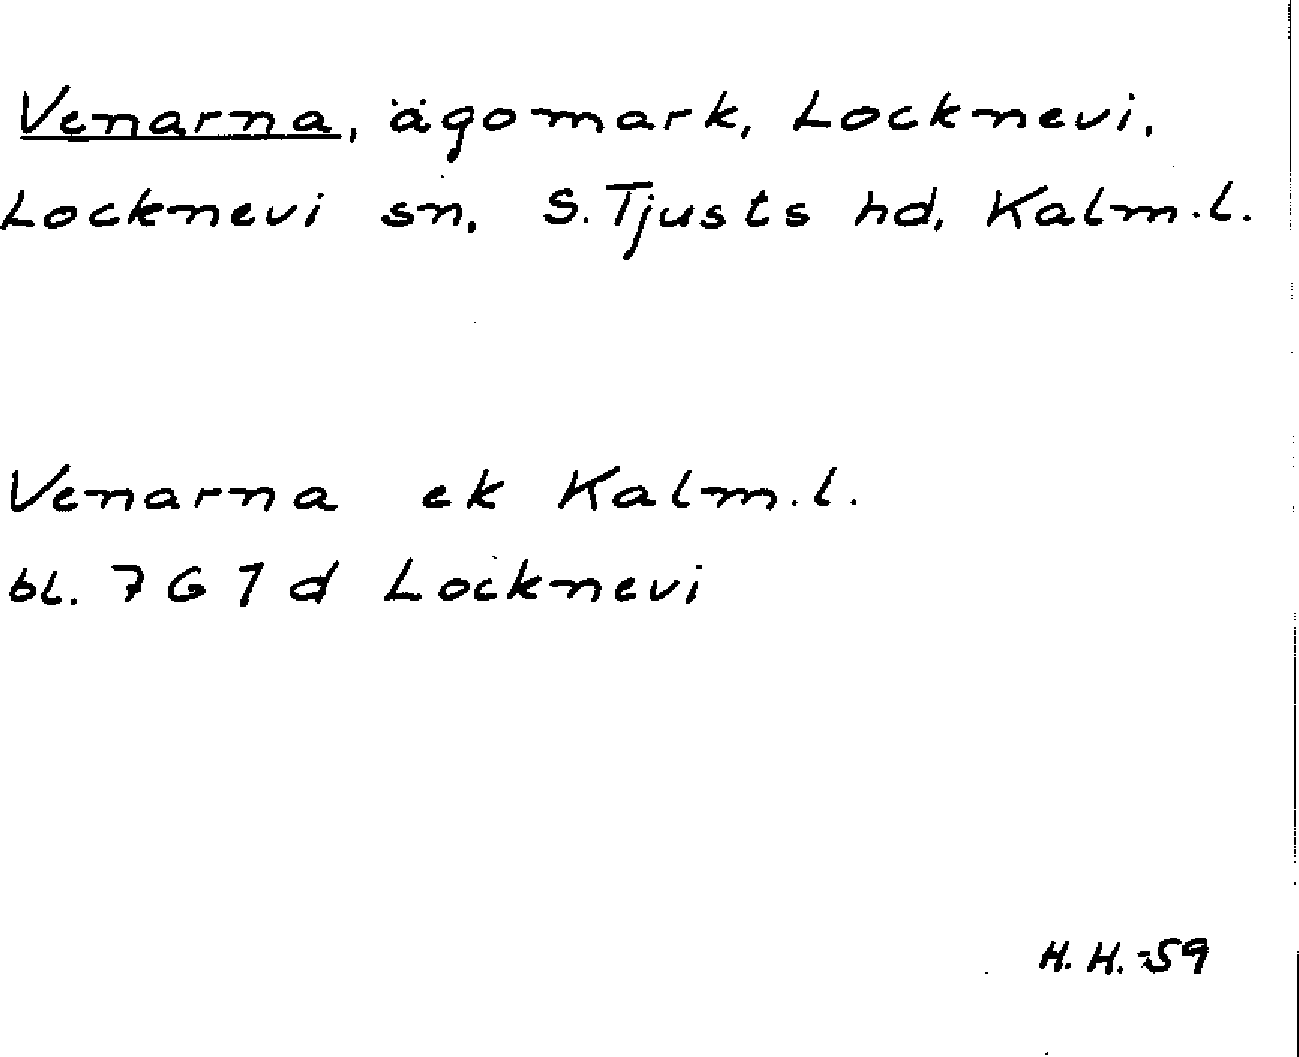 Venarna, ägomark, Locknevi,
Locknevi sn, S. Tjusts hd, Kalm. l.
Venarna ek Kalm. l.
bl. 7 G 7 d Locknevi
H. H. -59